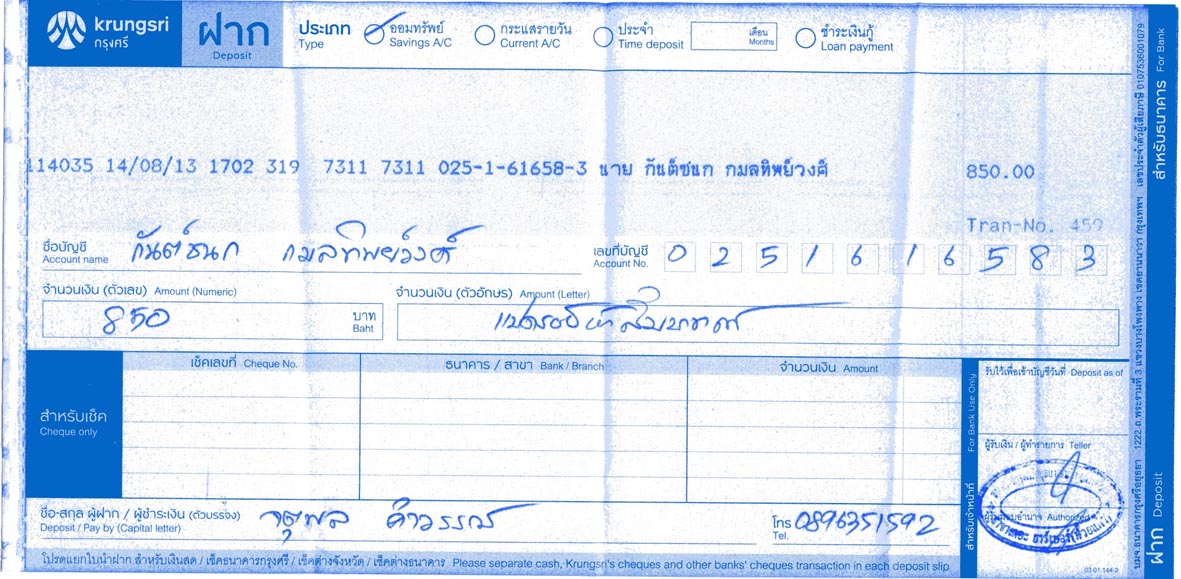 krungsri
กรุงศรี
ฝาก
Deposit
ประเภท
Type
ออมทรัพย์
Savings A/C
กระแสรายวัน
Current A/C
ประจำ
Time deposit
เดือน
Months
ชำระเงินกู้
Loan payment
114035 14/08/13 1702 319 7311 7311 025-1-61658-3 นาย กันต์ชนก กมลทิพย์วงศ์ 850.00
Tran-No. 459
ชื่อบัญชี
Account name
กันต์ชนก กมลทิพย์วงศ์
เลขที่บัญชี
Account No.
0 2 5 1 6 1 6 5 8 3
จำนวนเงิน (ตัวเลข) Amount (Numeric)
850
บาท
Baht
จำนวนเงิน (ตัวอักษร) Amount (Letter)
แปดร้อยห้าสิบบาท
สำหรับเช็ค
Cheque only
เช็คเลขที่ Cheque No.
ธนาคาร / สาขา Bank / Branch
จำนวนเงิน Amount
สำหรับเจ้าหน้าที่ For Bank Use Only
รับไว้เพื่อเข้าบัญชีวันที่ Deposit as of
ผู้รับเงิน / ผู้ทำรายการ Teller
ผู้รับมอบอำนาจ Authorized
ชื่อ-สกุล ผู้ฝาก / ผู้ชำระเงิน (ตัวบรรจง)
Deposit / Pay by (Capital letter)
จตุพล
โทร
Tel.
0896351592
โปรดแยกใบนำฝาก สำหรับเงินสด / เช็คธนาคารกรุงศรี / เช็คต่างจังหวัด / เช็คต่างธนาคาร Please separate cash, Krungsri's cheques and other banks' cheques transaction in each deposit slip
03 01 144-2
บมจ.ธนาคารกรุงศรีอยุธยา 1222 ถ.พระรามที่ 3 แขวงบางโพงพาง เขตยานนาวา กรุงเทพฯ เลขประจำตัวผู้เสียภาษี 0107536001079
ฝาก Deposit
สำหรับธนาคาร For Bank